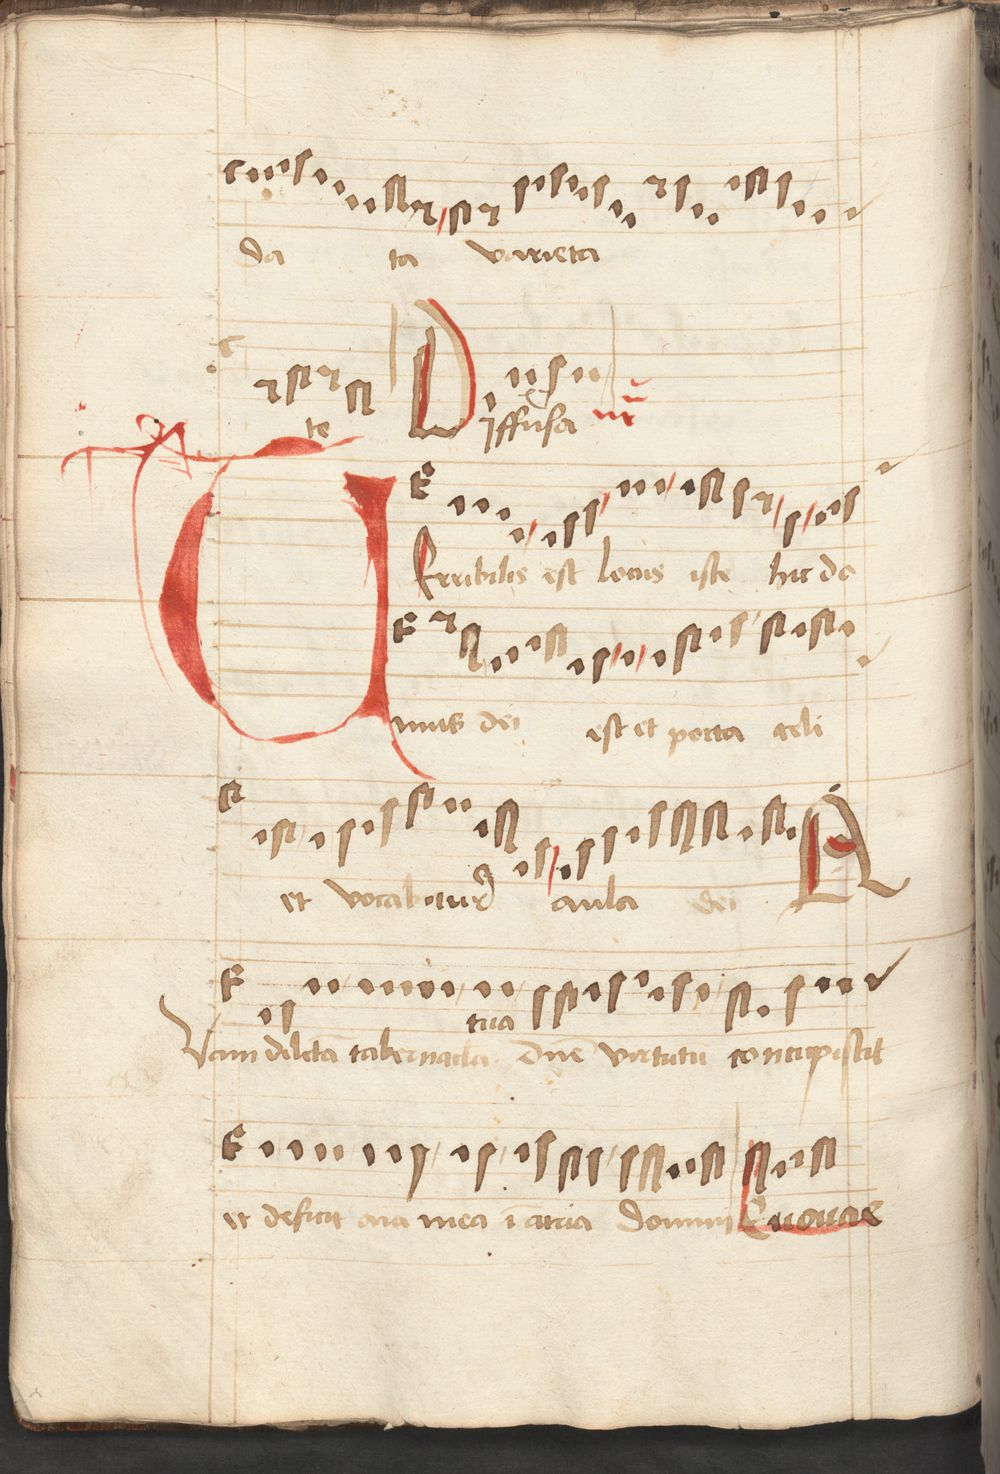 da ta varieta
te Diffusa
Terribilis est locus iste hic do
mus dei est et porta celi
et vocabitur aula dei
tua
Quam dilecta tabernacula dñe virtutũ concupiscit
et deficit aĩa mea ĩ atria Domini Euouae